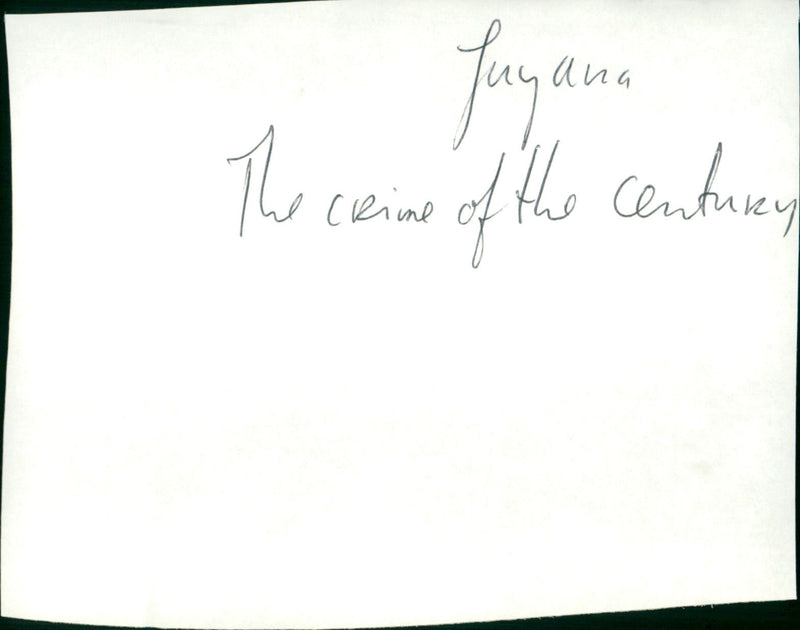 Guyana
The crime of the century